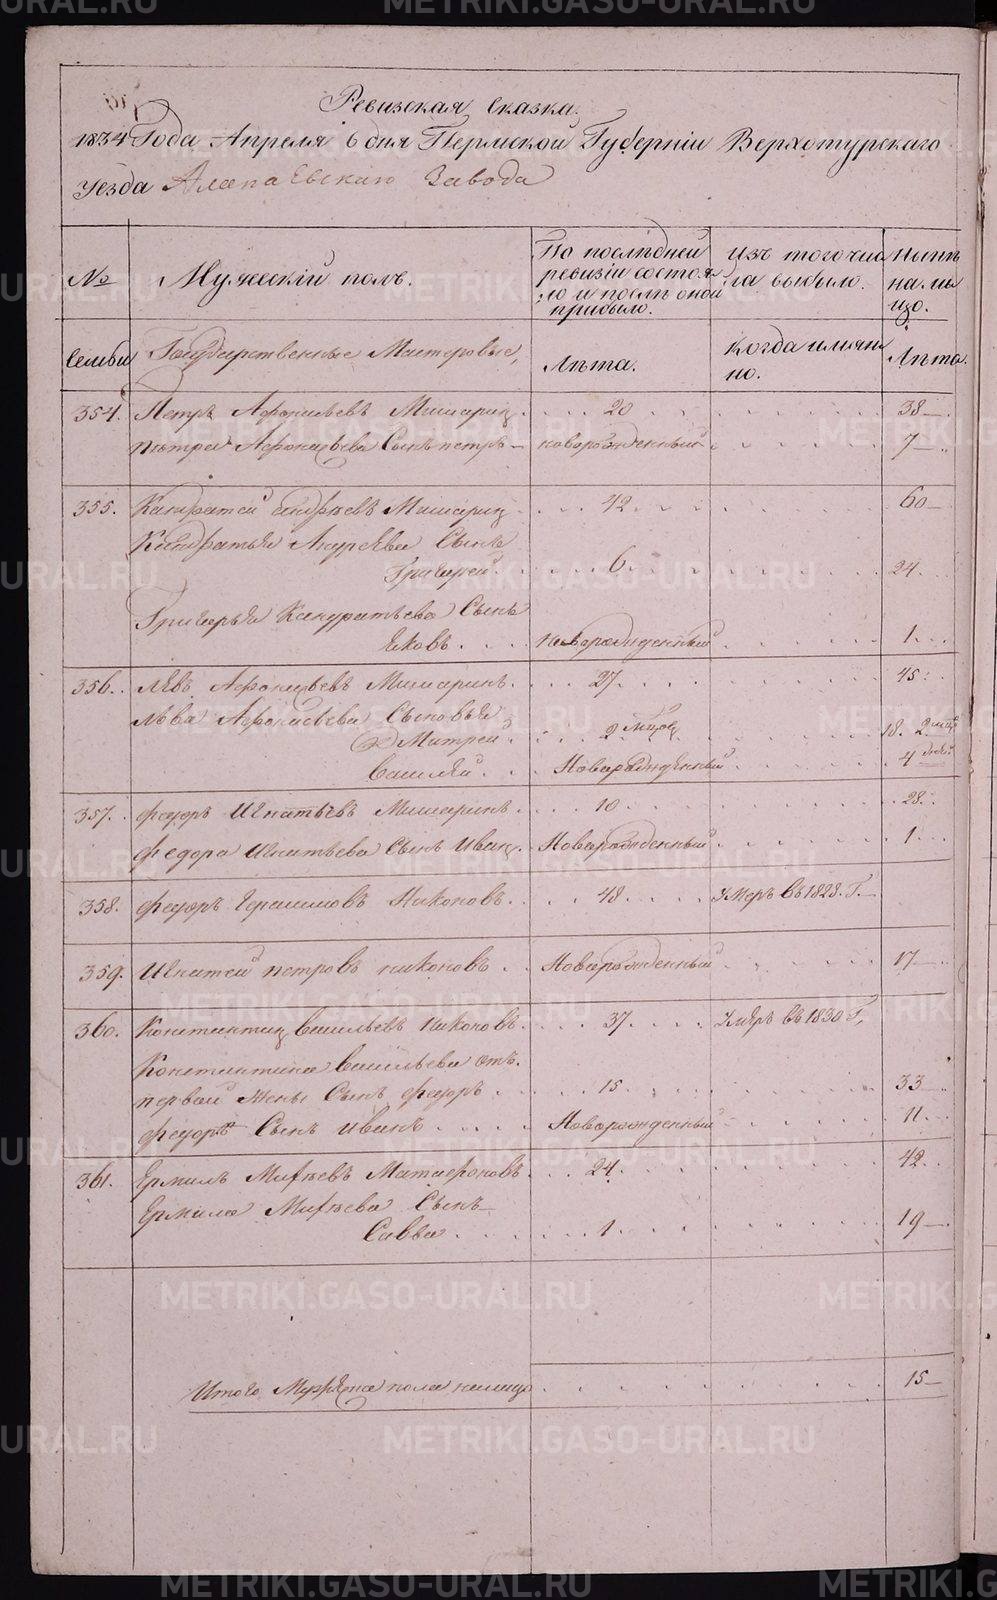 Ревизская Сказка
1834 Года Апреля 6 дня Пермской Губерніи Верхотурскаго
Уезда Алапаевскаго Завода
№ Мужескій полъ.
По последней ревизіи состояло и после оной прибыло.
Изъ того числа выбыло.
Ныне на лицо.
Семьи Государственные Мастеровые,
Лета.
Когда имянно.
Лета.
354. Петръ Афонасьевъ Мишаринъ. 20 38
Петра Афонасьева Сынъ петръ новорожденный 7
355. Кандратей Андреевъ Мишаринъ 42 60
Кандратья Андреева Сынъ
Григорей. 6. 24
Григорья Кандратьева Сынъ
Яковъ. Новорожденный 1
356. Левъ Афонасьевъ Мишаринъ. 27. 45
Лева Афонасьева Сыновья
Дмитрей. 2 мцовъ 18. 2 мцъ
Василей. Новорожденный 4 дней
357. федоръ Игнатьевъ Мишаринъ. 10 28
федора Игнатьева Сынъ Иванъ. Новорожденный 1
358. федоръ Герасимовъ Никоновъ. 48 умеръ въ 1828. Г.
359. Игнатей петровъ никоновъ Новорожденный 17
360. Констентинъ Васильевъ Никоновъ. 37. Умеръ въ 1830 Г.
Констентина Васильева отъ
первой жены Сынъ федоръ 15 33
федора Сынъ иванъ Новорожденный 11
361. Ермилъ Михеевъ 24. 42
Ермила Михеева Сынъ
Савва. 1. 19
Итого Мужеска пола налицо 15
METRIKI.GASO-URAL.RU